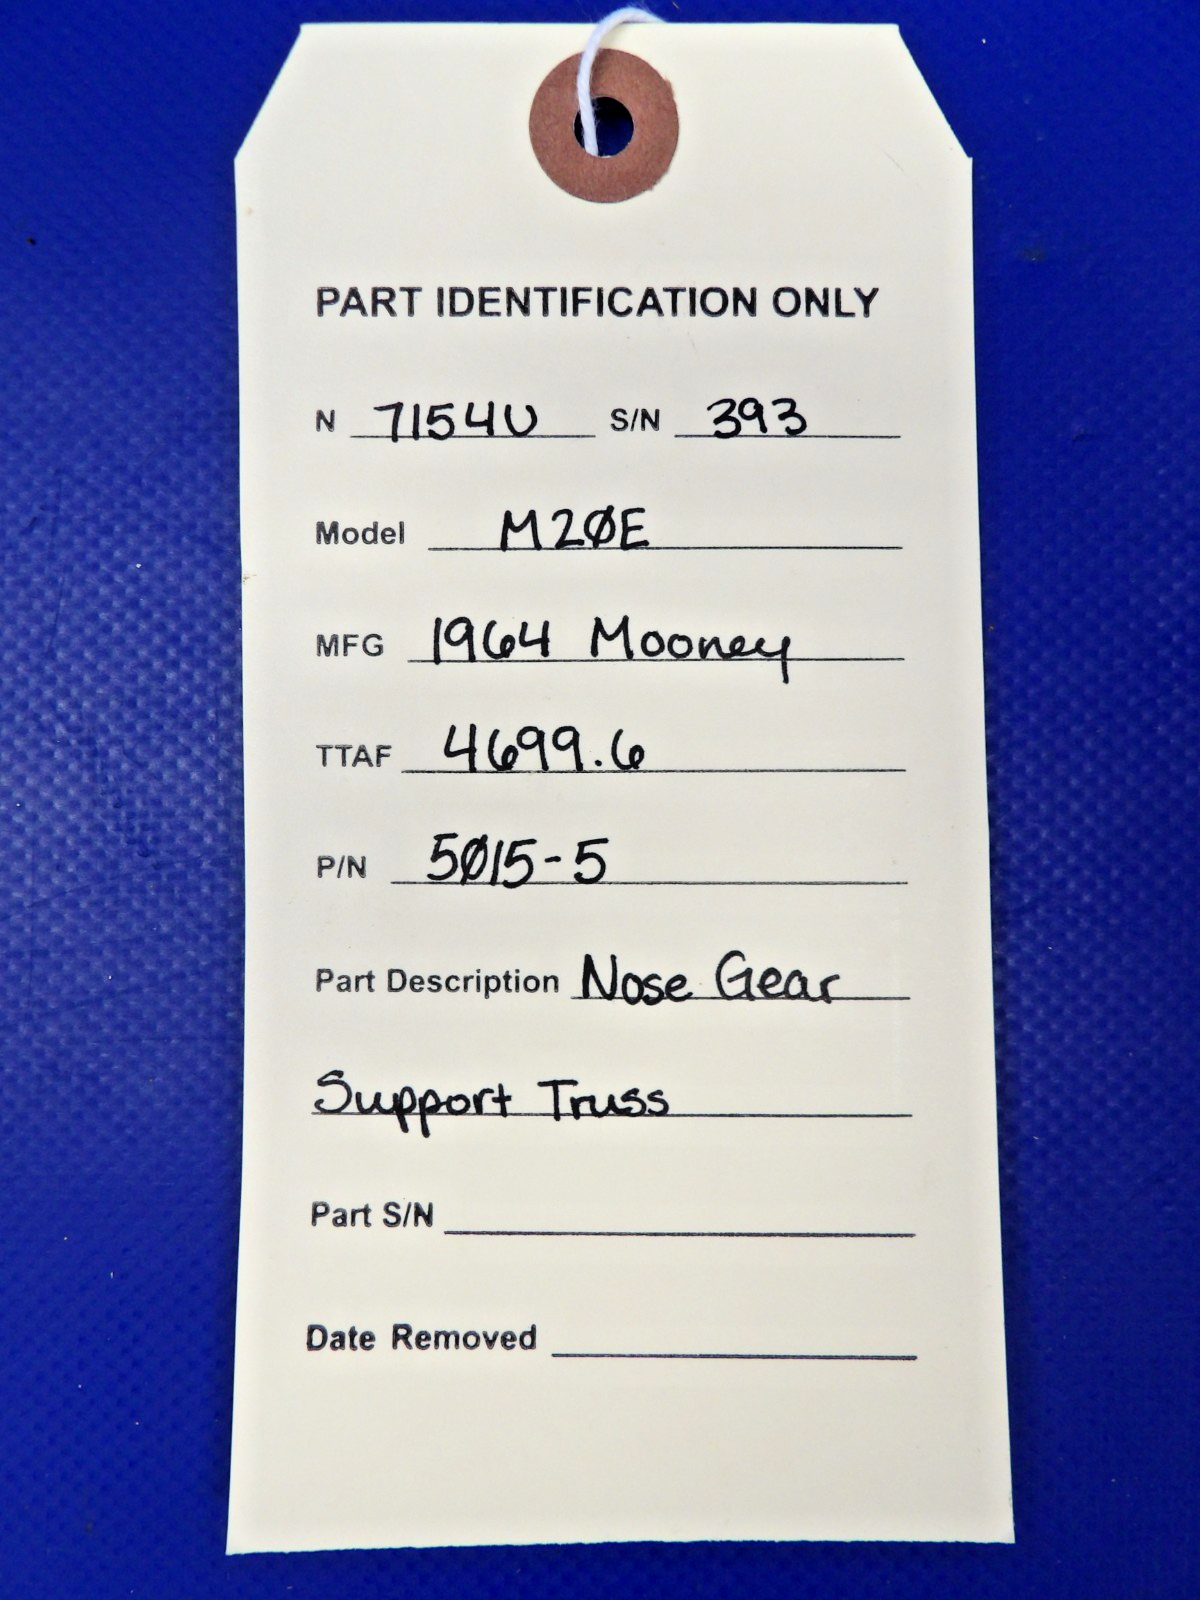 PART IDENTIFICATION ONLY
N 7154U S/N 393
Model M20E
MFG 1964 Mooney
TTAF 4699.6
P/N 5015-5
Part Description Nose Gear
Support Truss
Part S/N
Date Removed